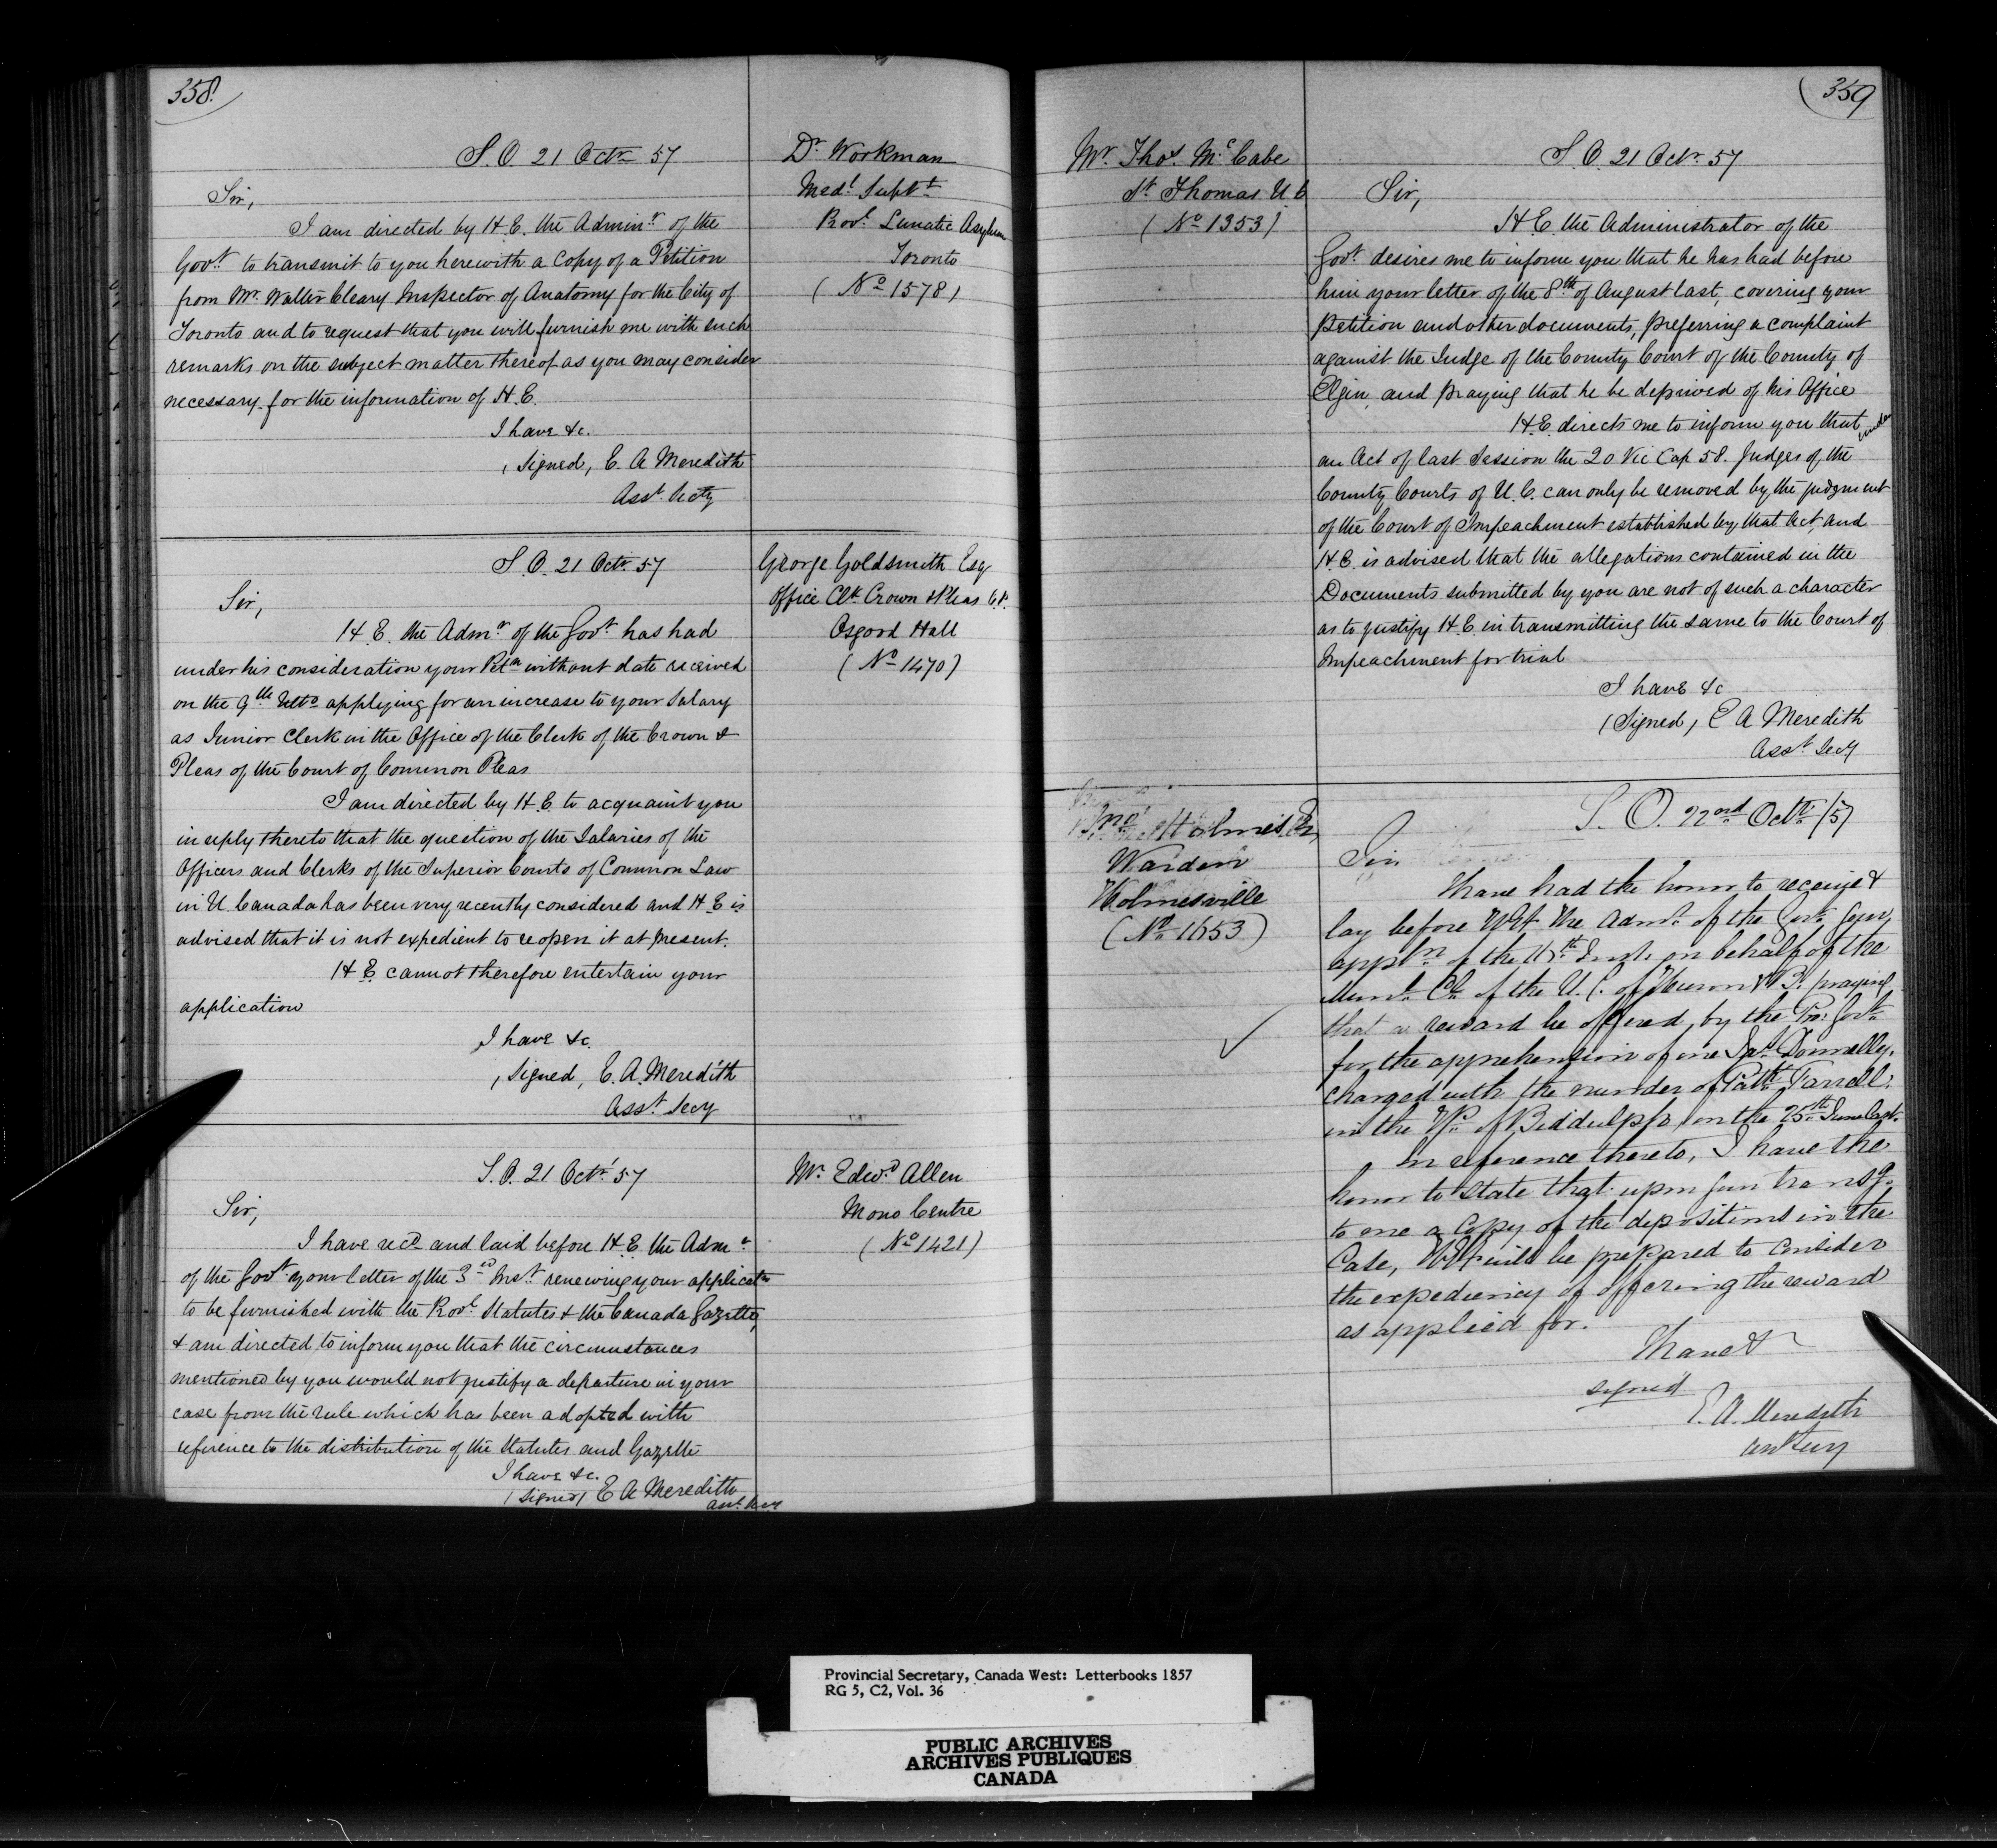 358.
S.O. 21 Octr 57
Dr Workman
Medl Supt
Provl Lunatic Asylum
Toronto
(No 1578)
Sir,
I am directed by H.E. the Adminr of the
Govt to transmit to you herewith a Copy of a Petition
from Mr Walter Cleary Inspector of Anatomy for the City of
Toronto and to request that you will furnish me with such
remarks on the subject matter thereof as you may consider
necessary for the information of H.E.
I have &c.
(Signed) E. A Meredith
Asst Secty
S.O. 21 Octr 57
George Goldsmith Esq
Office Clk Crown & Pleas C.P.
Osgood Hall
(No 1470)
Sir,
H.E. the Admr of the Govt has had
under his consideration your Petn without date received
on the 9th Ulto applying for an increase to your Salary
as Junior Clerk in the Office of the Clerk of the Crown &
Pleas of the Court of Common Pleas
I am directed by H.E. to acquaint you
in reply thereto that the question of the Salaries of the
Officers and Clerks of the Superior Courts of Common Law
in U. Canada has been very recently considered and H.E. is
advised that it is not expedient to reopen it at present.
H.E. cannot therefore entertain your
application
I have &c.
(Signed) E. A. Meredith
Asst Secy
S.O. 21 Octr 57
Mr Edwd Allen
Mono Centre
(No 1421)
Sir,
I have recd and laid before H.E. the Admr
of the Govt your letter of the 3rd Inst. renewing your applicatn
to be furnished with the Provl Statutes & the Canada Gazette,
& am directed to inform you that the circumstances
mentioned by you would not justify a departure in your
case from the rule which has been adopted with
reference to the distribution of the Statutes and Gazette
I have &c.
(Signed) E A Meredith
Asst Secy
359
Mr Thos McCabe
St Thomas U.C
(No 1353)
S.O. 21 Octr 57
Sir,
H.E. the Administrator of the
Govt desires me to inform you that he has had before
him your letter of the 8th of August last, covering your
Petition and other documents, preferring a complaint
against the Judge of the County Court of the County of
Elgin, and praying that he be deprived of his Office
H.E. directs me to inform you that under
an Act of last Session the 20 Vic Cap 58. Judges of the
County Courts of U.C. can only be removed by the judgment
of the Court of Impeachment established by that Act, and
H.E. is advised that the allegations contained in the
Documents submitted by you are not of such a character
as to justify H.E. in transmitting the same to the Court of
Impeachment for trial
I have &c
(Signed) E A Meredith
Asst Secy
Jno Holmes Esq
Warden
Holmesville
(No 1653)
S. O. 22nd Octr /57
Sir
I have had the honor to receive &
lay before the Admr of the Govt your
appln of the Inst. on behalf of the
Munl Cl of the U. C. of Huron & B. praying
that a reward be offered, by the Prov Govt
for the apprehension of one Jas Donnelly,
charged with the murder of Patk Farrell,
in the Tp of Biddulph, on the 25th June last.
In reference thereto, I have the
honor to state that upon your transg.
to me a Copy of the depositions in the
Case, HE will be prepared to consider
the expediency of offering the reward
as applied for.
I have &
signed
E. A. Meredith
Asst Secy
Provincial Secretary, Canada West: Letterbooks 1857
RG 5, C2, Vol. 36
PUBLIC ARCHIVES
ARCHIVES PUBLIQUES
CANADA